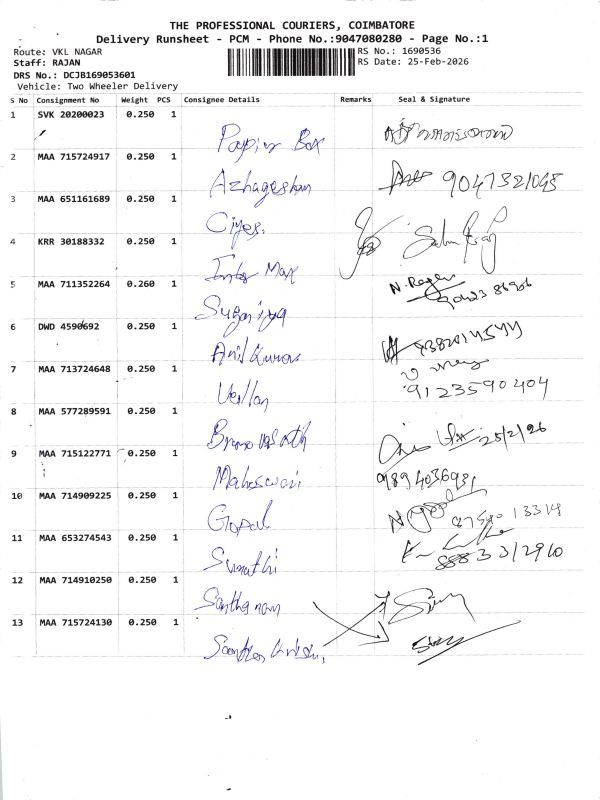 THE PROFESSIONAL COURIERS, COIMBATORE
Delivery Runsheet - PCM - Phone No.:9047080280 - Page No.:1
Route: VKL NAGAR RS No.: 1690536
Staff: RAJAN RS Date: 25-Feb-2026
DRS No.: DCJB169053601
Vehicle: Two Wheeler Delivery
S No Consignment No Weight PCS Consignee Details Remarks Seal & Signature
1 SVK 20200023 0.250 1 Box
2 MAA 715724917 0.250 1 Azhageshan 9047321045
3 MAA 651161689 0.250 1
4 KRR 30188332 0.250 1 Max
5 MAA 711352264 0.260 1 Suganiya
6 DWD 4590692 0.250 1 Anil Kumar
7 MAA 713724648 0.250 1 9123590404
8 MAA 577289591 0.250 1 25/2/26
9 MAA 715122771 0.250 1 Maheswari 9894036931
10 MAA 714909225 0.250 1 Gopal
11 MAA 653274543 0.250 1 Sumathi
12 MAA 714910250 0.250 1 Santhanam
13 MAA 715724130 0.250 1